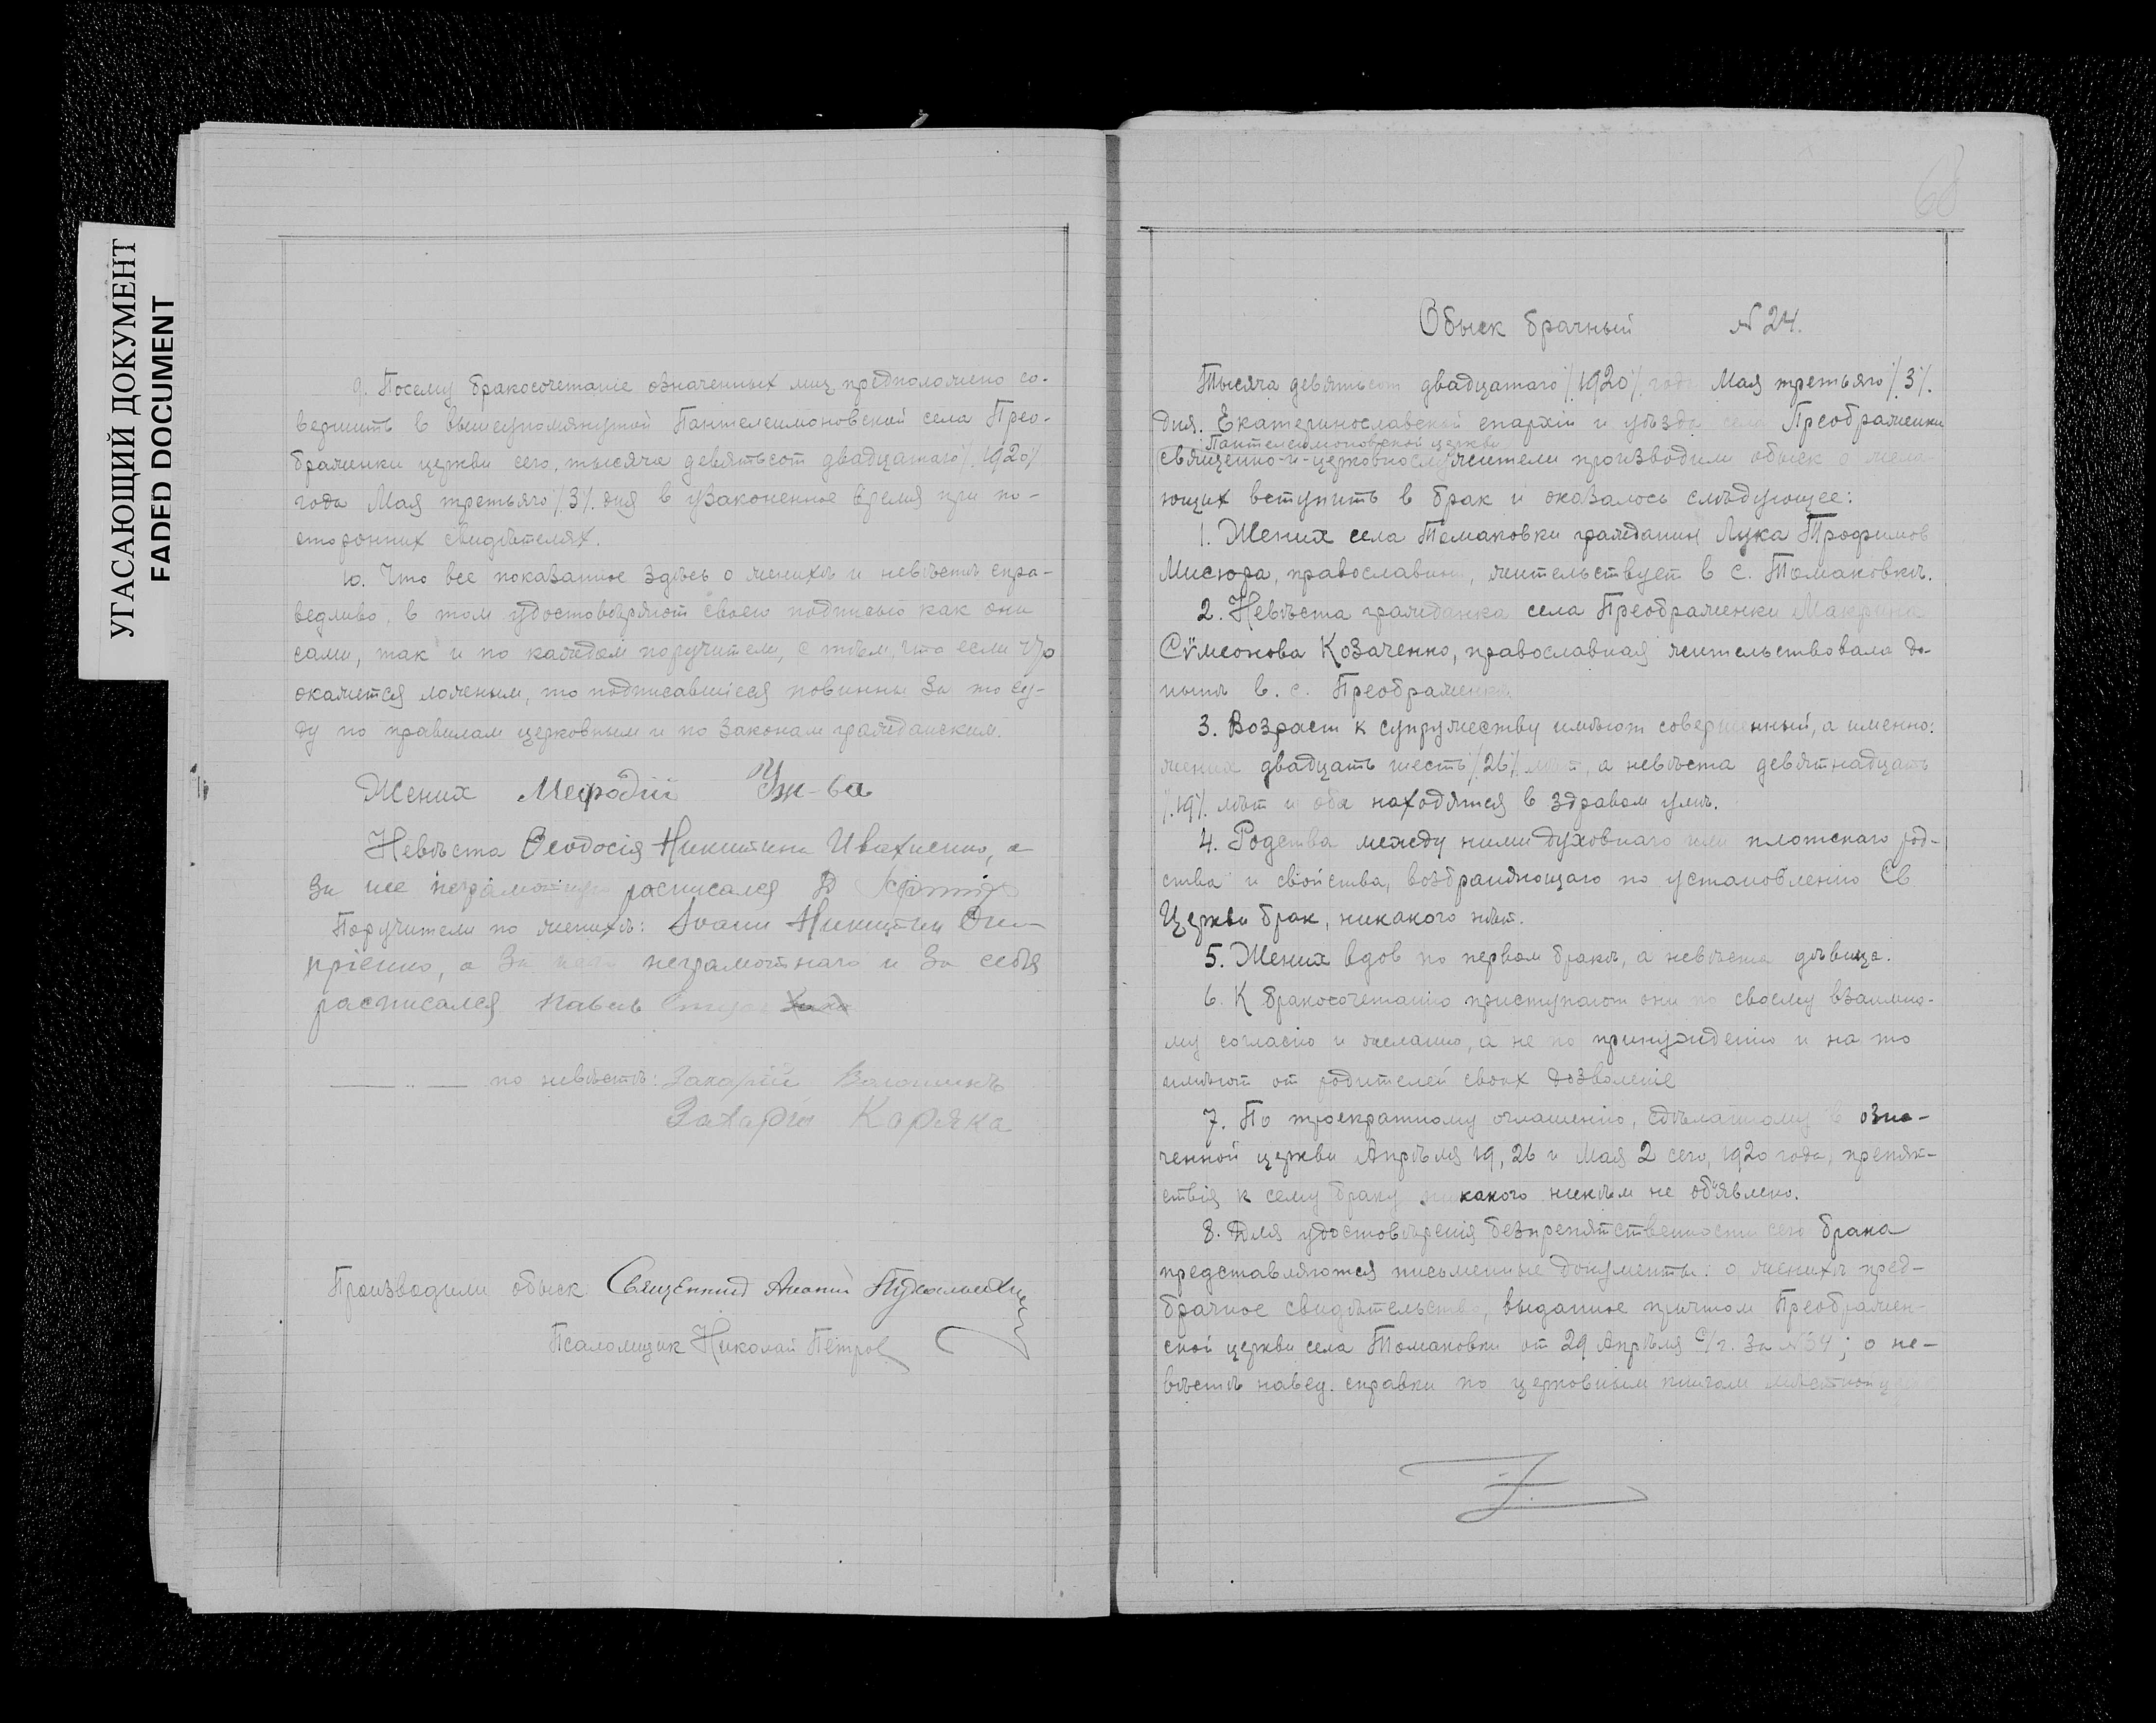 УГАСАЮЩИЙ ДОКУМЕНТ
FADED DOCUMENT
9. Посему бракосочетаніе означенных лиц предположено со-
вершить в вышеупомянутой Пантелеимоновской села Прео-
браженки церкви сего, тысяча девятьсот двадцатаго /.1920/.
года Мая третьяго /.3/. дня в узаконенное время при по-
сторонних свидѣтелях.
10. Что все показанное здѣсь о женихѣ и невѣстѣ спра-
ведливо, в том удостовѣряют своею подписью как они
сами, так и по каждом поручители, с тѣм, что если что
окажется ложным, то подписавшіеся повинны за то су-
ду по правилам церковным и по законам гражданским.
Жених Мефодій
Невѣста Ѳеодосія Никитина Ивахненко, а
за нее неграмотную расписался
Поручители по женихѣ: Іоанн Никитин Они-
прієнко, а за него неграмотнаго и за себя
расписался Павел
—— „ — по невѣстѣ: Захарій
Захарій Каряка
Производили обыск: Священник
Псаломщик Николай Петров
68
Обыск брачный N 24.
Тысяча девятьсот двадцатаго /.1920/. года Мая третьяго /.3/.
дня. Екатеринославской епархіи и уѣзда села Преображенки
Пантелеимоновской церкви
священно-и-церковнослужители производили обыск о жела-
ющих вступить в брак и оказалось слѣдующее:
1. Жених села Томаковки гражданин Лука Трофимов
Мисюра, православный, жительствует в с. Томаковкѣ.
2. Невѣста гражданка села Преображенки Макрина
Сѵмеонова Козаченко, православная жительствовала до-
нынѣ в с. Преображенкѣ
3. Возраст к супружеству имѣют совершенный, а именно:
жених двадцать шесть /.26/. лѣт, а невѣста девятнадцать
/.19/. лѣт и оба находятся в здравом умѣ.
4. Родства между ними духовнаго или плотскаго род-
ства и свойства, возбраняющаго по установленію Св
Церкви брак, никакого нѣт.
5. Жених вдов по первом бракѣ, а невѣста дѣвица.
6. К бракосочетанію приступают они по своему взаимно-
му согласію и желанію, а не по принужденію и на то
имѣют от родителей своих дозволеніе
7. По троекратному оглашенію, сдѣланному в озна-
ченной церкви Апрѣля 19, 26 и Мая 2 сего, 1920 года, препят-
ствія к сему браку никакого никѣм не объявлено.
8. Для удостовѣренія безпрепятственности сего брака
представляются письменные документы: о женихѣ пред-
брачное свидѣтельство, выданное причтом Преображен-
ской церкви села Томаковки от 29 Апрѣля с/г. за N 64; о не-
вѣстѣ навед. справки по церковным книгам мѣстной